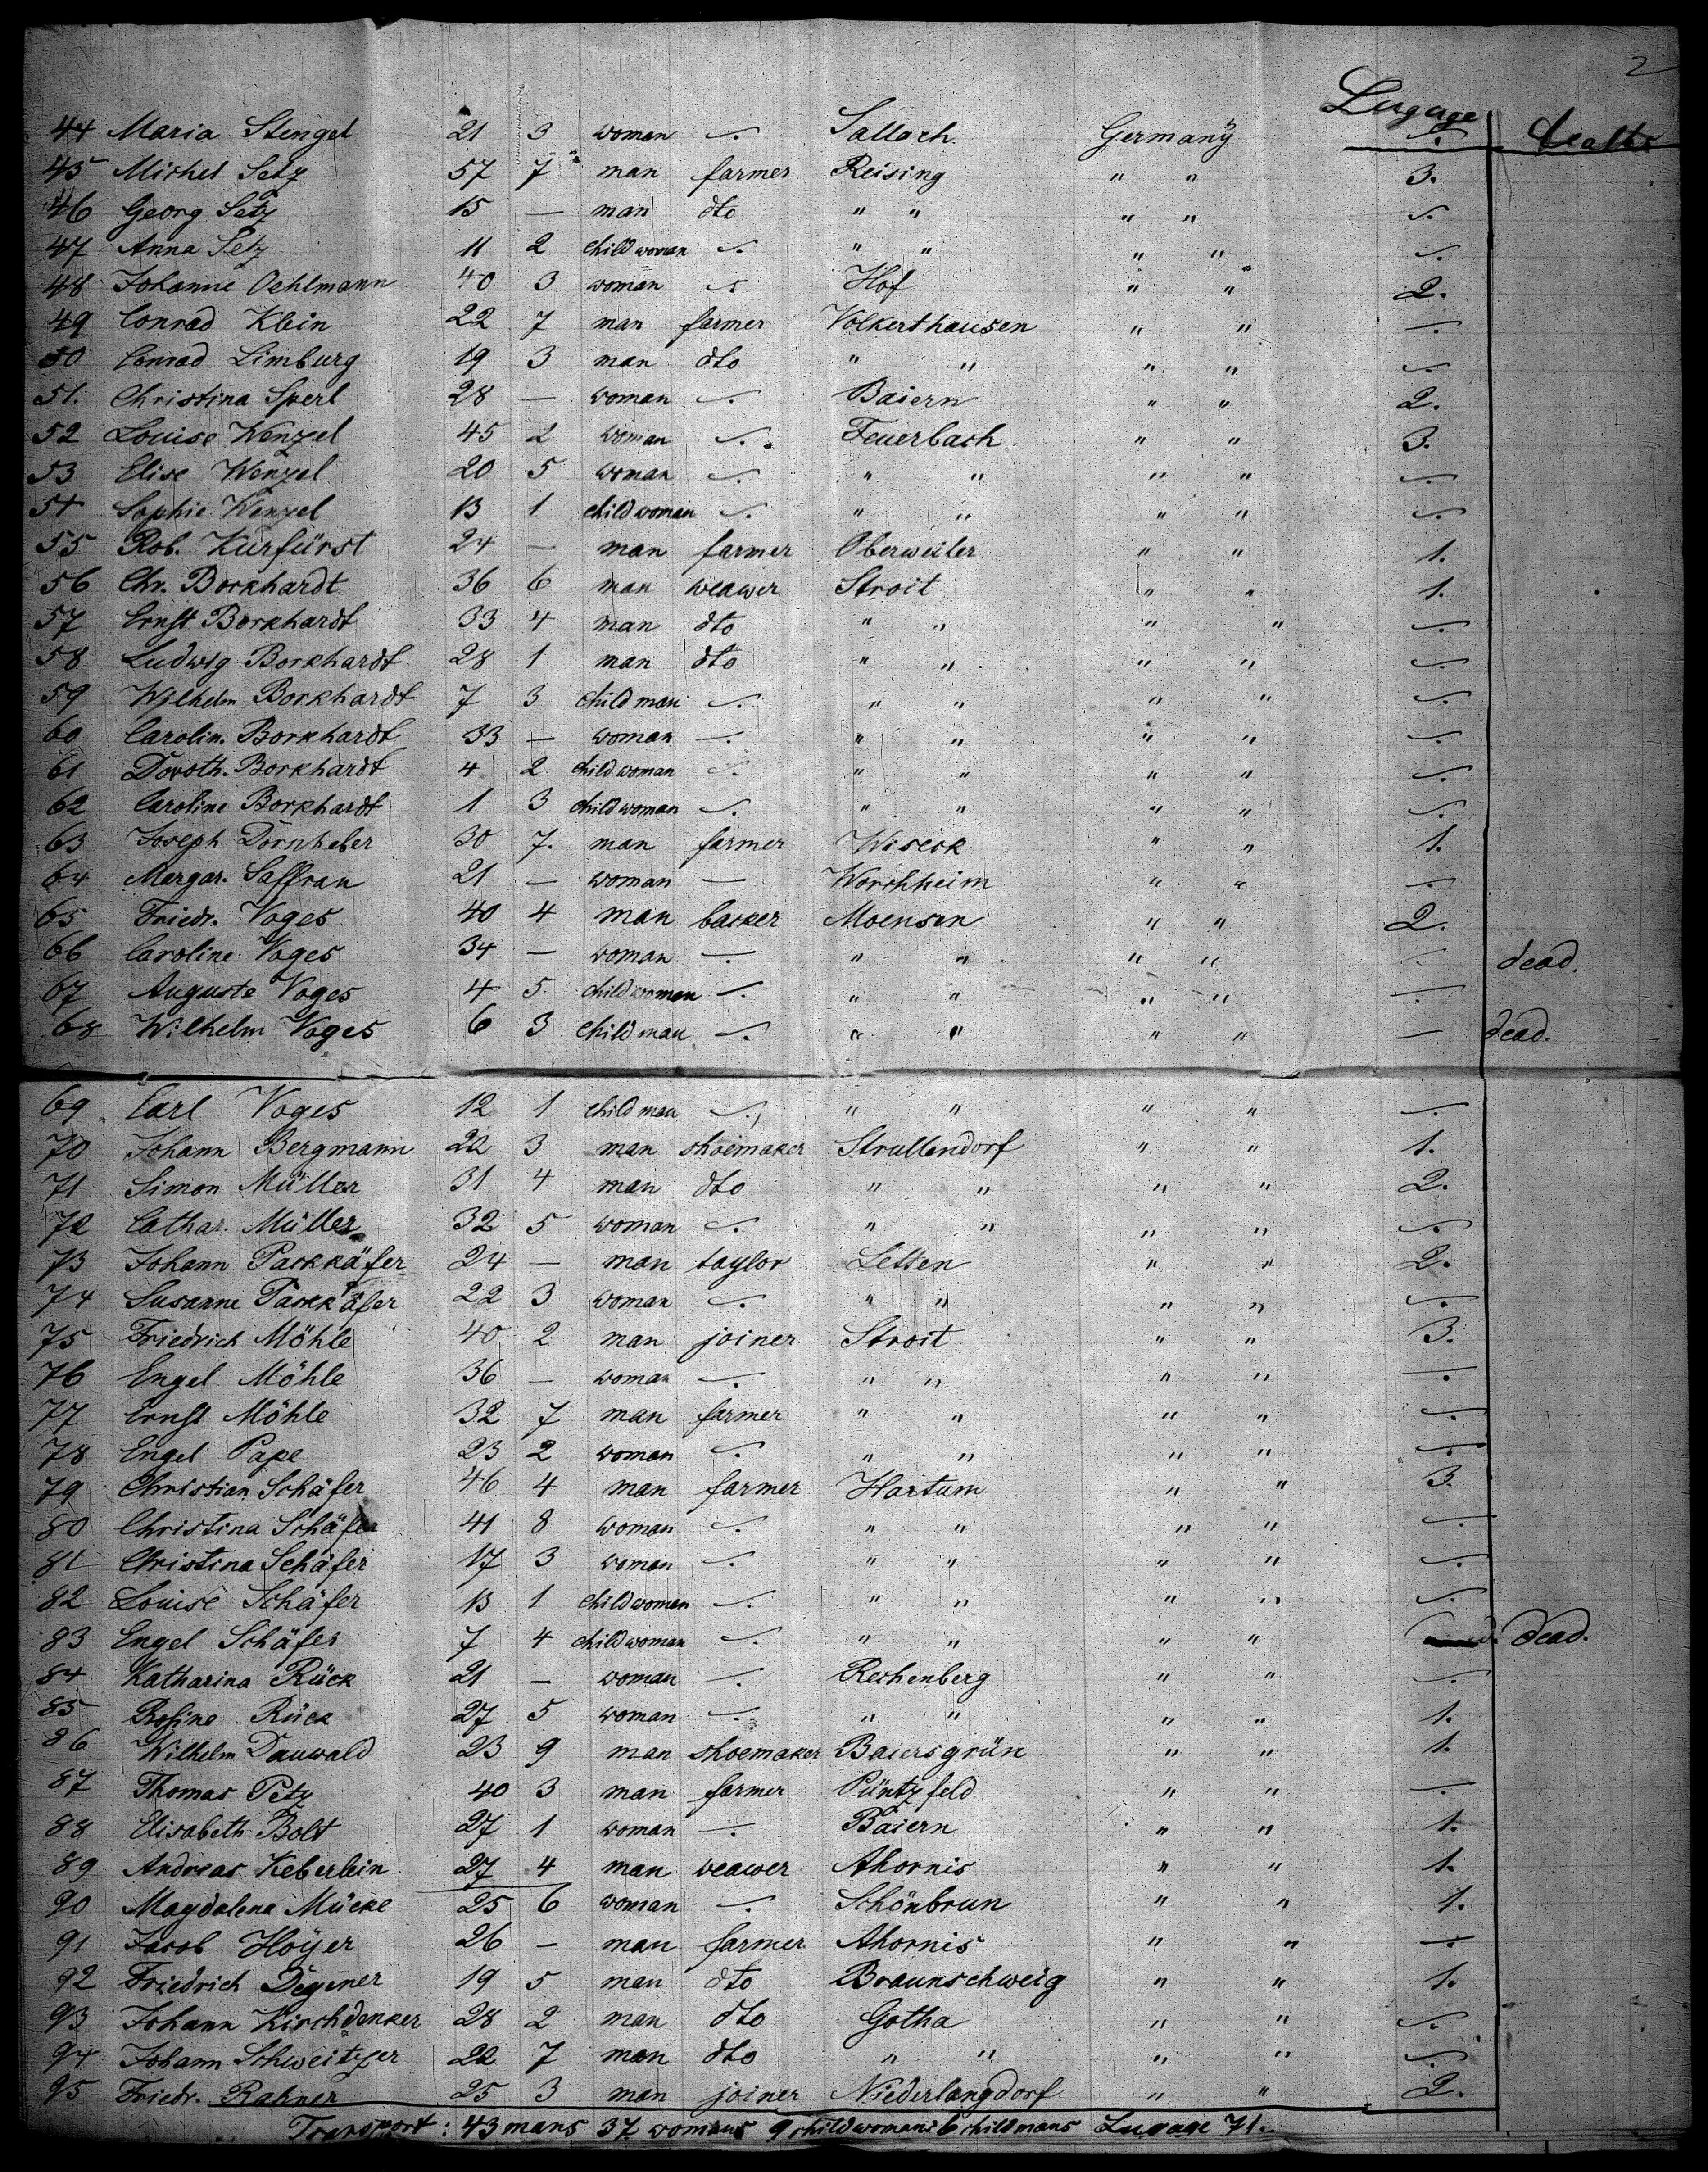 2
Lugage deaths
44 Maria Stengel 21 3 woman —. Sallach. Germany —.
45 Michel Setz 57 7 man farmer Reising " " 3.
46 Georg Setz 15 — man dto " " " " —.
47 Anna Setz 11 2 child woman —. " " " " —.
48 Johanne Oehlmann 40 3 woman —. Hof " " 2.
49 Conrad Klein 22 7 man farmer Volkerthausen " " —.
50 Conrad Limburg 19 3 man dto " " " " —.
51. Christina Sperl 28 — woman —. Baiern " " 2.
52 Louise Wenzel 45 2 woman —. Feuerbach " " 3.
53 Elise Wenzel 20 5 woman —. " " " " —.
54 Sophie Wenzel 13 1 child woman —. " " " " —.
55 Rob. Kurfürst 24 — man farmer Oberweiler " " 1.
56 Chr. Borkhardt 36 6 man weawer Stroit " " 1.
57 Ernst Borkhardt 33 4 man dto " " " " —.
58 Ludwig Borkhardt 28 1 man dto " " " " —.
59 Wilhelm Borkhardt 7 3 child man —. " " " " —.
60 Carolin. Borkhardt 33 — woman —. " " " " —.
61 Doroth. Borkhardt 4 2 child woman —. " " " " —.
62 Caroline Borkhardt 1 3 child woman —. " " " " —.
63 Joseph Dörnheber 30 7. man farmer Wiseck " " 1.
64 Margar. Saffran 21 — woman — Worchheim " " —.
65 Friedr. Voges 40 4 man backer Moensen " " 2.
66 Caroline Voges 34 — woman —. " " " " —. dead.
67 Auguste Voges 4 5 child woman —. " " " " —.
68 Wilhelm Voges 6 3 child man —. " " " " — dead.
69 Carl Voges 12 1 child man —. " " " " —.
70 Johann Bergmann 22 3 man shoemaker Strullendorf " " 1.
71 Simon Müller 31 4 man dto " " " " 2.
72 Cathar. Müller 32 5 woman —. " " " " —.
73 Johann Packkäfer 24 — man taylor Letten " " 2.
74 Susanne Packkäfer 22 3 woman —. " " " " —.
75 Friedrich Möhle 40 2 man joiner Stroit " " 3.
76 Engel Möhle 36 — woman —. " " " " —.
77 Ernst Möhle 32 7 man farmer " " " " —.
78 Engel Pape 23 2 woman —. " " " " —.
79 Christian Schäfer 46 4 man farmer Hartum " " 3.
80 Christina Schäfer 41 8 woman —. " " " " —.
81 Christina Schäfer 17 3 woman —. " " " " —.
82 Louise Schäfer 13 1 child woman —. " " " " —.
83 Engel Schäfer 7 4 child woman —. " " " " dead.
84 Katharina Rück 21 — woman —. Rechenberg " " —.
85 Rosine Rück 27 5 woman —. " " " " 1.
86 Wilhelm Dauwald 23 9 man shoemaker Baiersgrün " " 1.
87 Thomas Petz 40 3 man farmer Püntzfeld " " —.
88 Elisabeth Bolt 27 1 woman —. Baiern " " 1.
89 Andreas Keberlein 27 4 man weawer Ahornis " " 1.
90 Magdalena Mücke 25 6 woman —. Schönbrun " " 1.
91 Jacob Höÿer 26 — man farmer Ahornis " " —.
92 Friedrich Degener 19 5 man dto Braunschweig " " 1.
93 Johann Kirchdenker 28 2 man dto Gotha " " —.
94 Johann Schweitzer 22 7 man dto " " " " —.
95 Friedr. Rahner 25 3 man joiner Niederlangdorf " " 2.
Transport: 43 mans 37 womans 9 child womans 6 child mans Lugage 71.